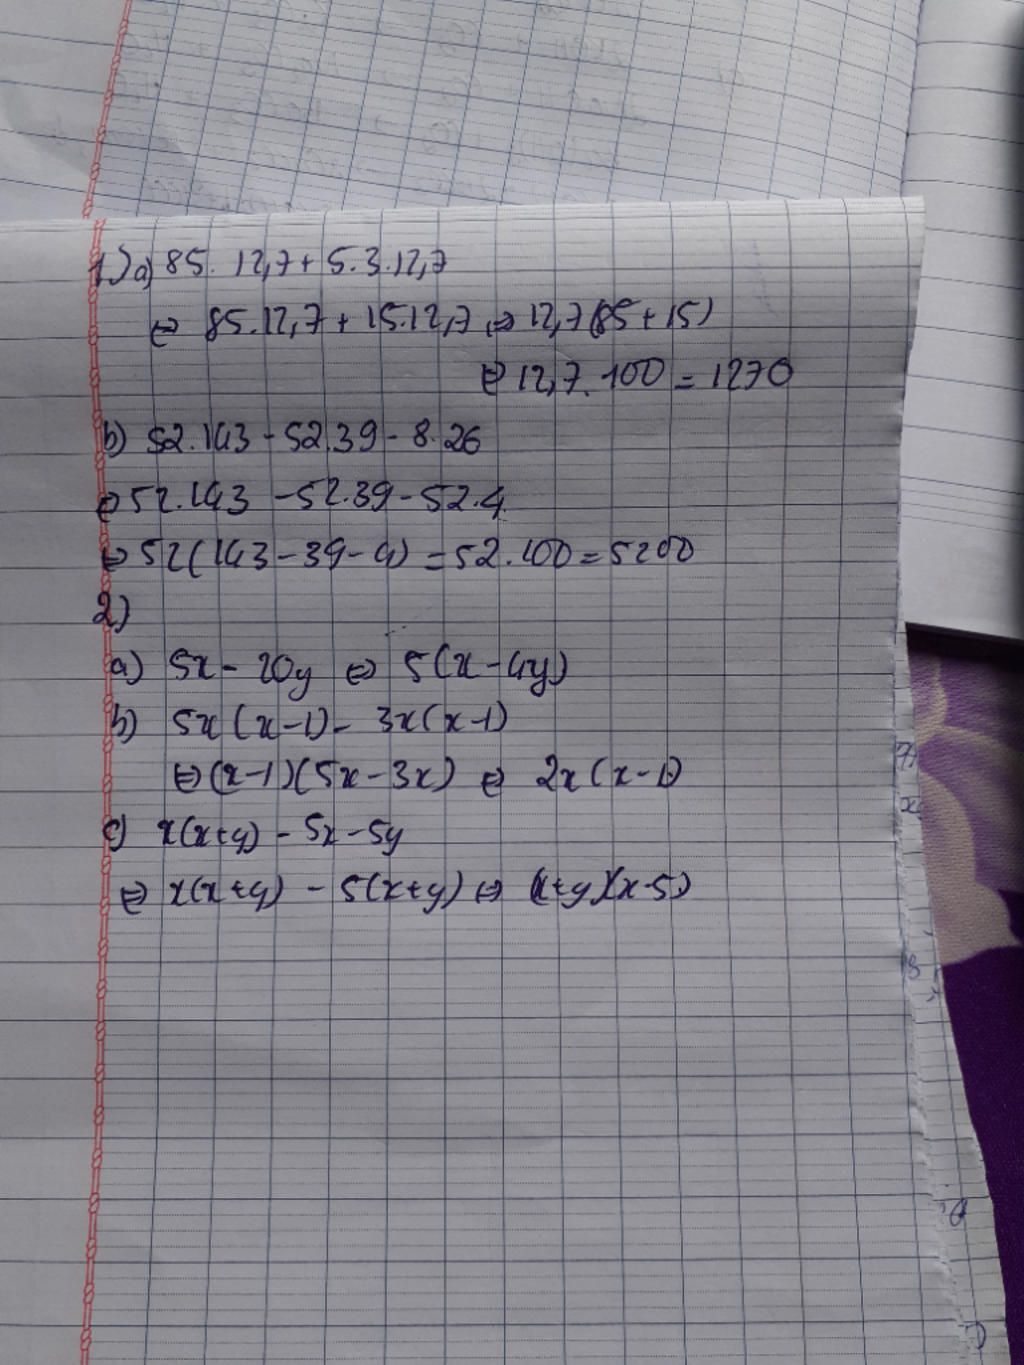 1.) a) 85. 12,7 + 5.3.12,7
⇔ 85.12,7 + 15.12,7 ⇔ 12,7(85 + 15)
⇔ 12,7.100 = 1270
b) 52.143 - 52.39 - 8.26
⇔ 52.143 - 52.39 - 52.4
⇔ 52(143 - 39 - 4) = 52.100 = 5200
2)
a) 5x - 20y ⇔ 5(x - 4y)
b) 5x(x-1) - 3x(x-1)
⇔ (x-1)(5x - 3x) ⇔ 2x(x-1)
c) x(x+y) - 5x - 5y
⇔ x(x+y) - 5(x+y) ⇔ (x+y)(x-5)